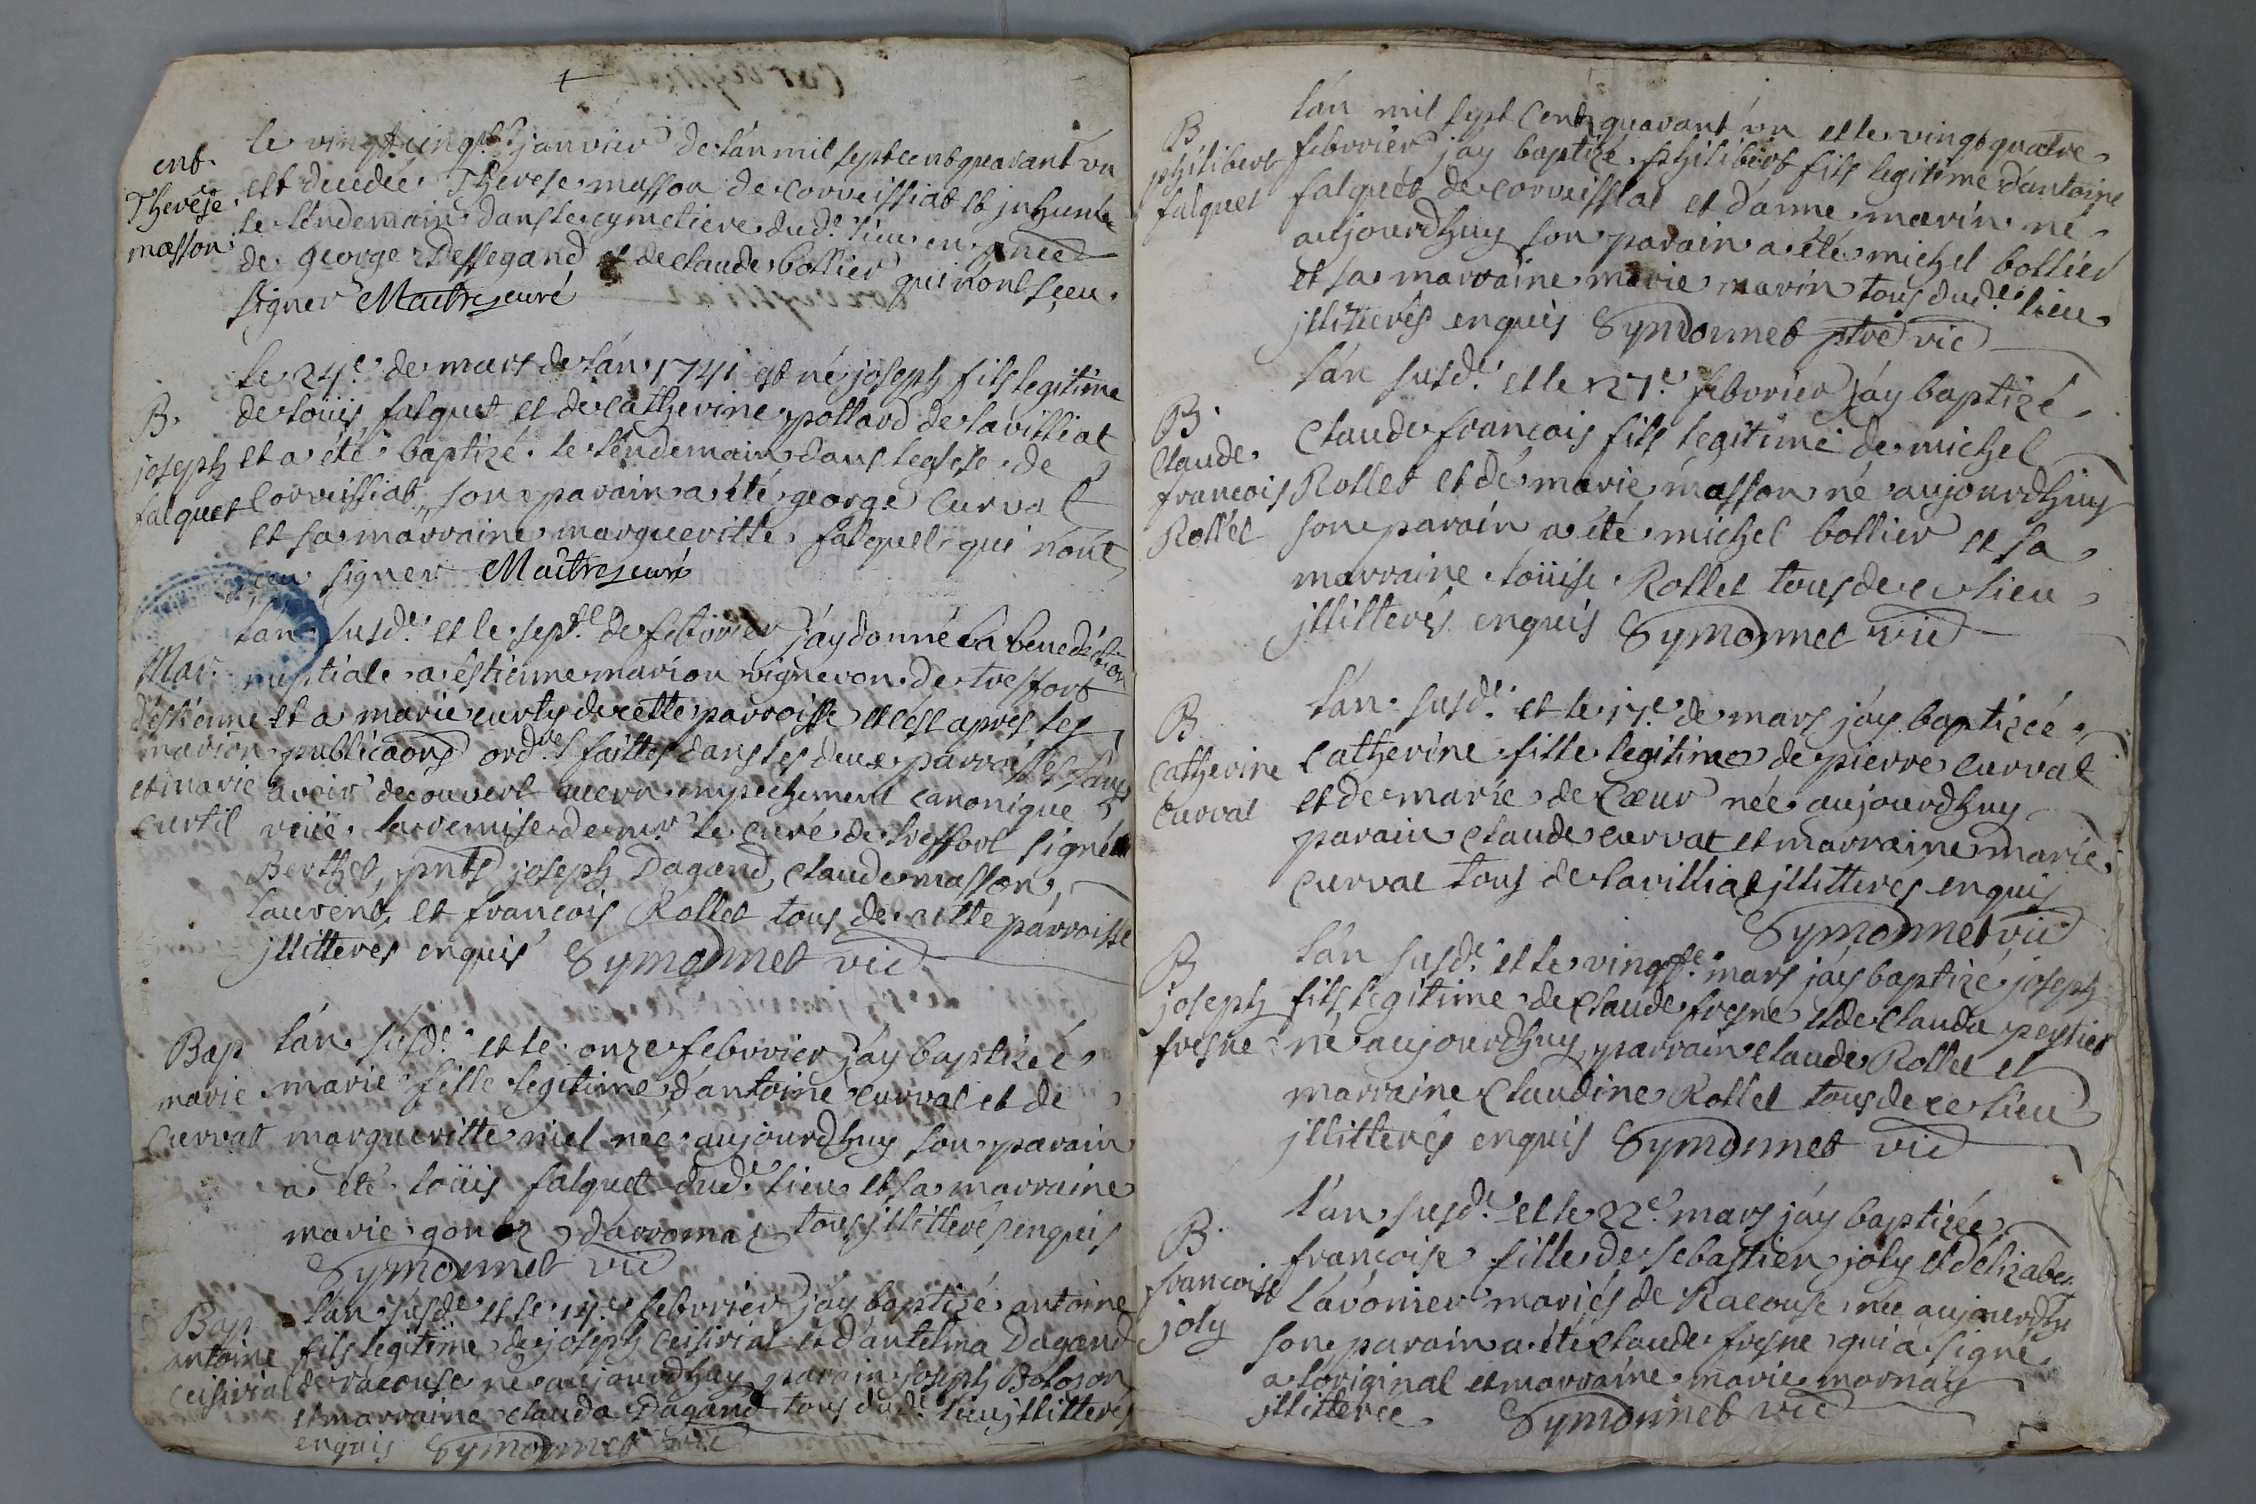 ent.
Therese
masson
le vingt cinq.e janvier de l'an mil sept cent quarant un
est decedée Therese masson de corveissiat et inhumée
le lendemain dans le cymetiere dud.t lieu en pnce
de george Dessegand et de claude bollier qui n'ont sceu
signer Maitre curé
B.
joseph
falquet
le 24.e de mars de l'an 1741 est né joseph fils legitime
de loüis falquet et de catherine pottard de lavilliat
et a été baptizé le lendemain dans leglise de
Corveissiat, son parain a été george Curvat
et sa marraine margueritte falquet qui n'ont
sceu signer Maitre curé
Mar.
d'estienne
marion
et marie
curtil
l'an susd.t et le sept.e de febvrier j'ay donné la benediction
nuptiale a estienne marion vigneron de tresfort
et a marie curty de cette parroisse et c'est apres les
publicaons ord.res faittes dans les deux parroisses sans
avoir decouvert aucun empechement canonique
veüe la remise de mr le curé de tresfort signé
Berthet, pnts joseph Dagand, claude masson,
laurent, et françois Rollet tous de cette parroisse
jllitteres enquis Symonnet vic
Bap
marie
curvat
l'an susd.t et le onze febvrier j'ay baptizée
marie fille legitime d'antoine curvat et de
margueritte niel née aujourdhuy son parain
a été loüis falquet dud.t lieu et sa marraine
marie d'arromaz tous jllitterés enquis
Symonnet vic
Bap
antoine
ceisiriat
l'an susd.t et le 14.e febvrier j'ay baptizé antoine
fils legitime de joseph ceisiriat et d'antelma Dagand
de racouse né aujourdhuy parain joseph Bolozon
et marraine clauda Dagand tous dud.t lieu jllitteres
enquis Symonnet vic
B
philibert
falquet
l'an mil sept cent quarant un et le vingt quatre
febvrier j'ay baptizé philibert fils legitime d'antoine
falquet de corveissiat et d'anne marin né
aujourdhuy son parain a été michel bollier
et sa marraine marie marin tous dud.t lieu
jllitterés enquis Symonnet ptre vic
B.
Claude
francois
Rollet
l'an susd.t et le 27.e febvrier j'ay baptizé
Claude francois fils legitime de michel
Rollet et de marie masson né aujourdhuy
son parain a été michel bollier et sa
marraine loüise Rollet tous de ce lieu
jllitterés enquis Symonnet vic
B
Catherine
Curvat
l'an susd.t et le 17.e de mars j'ay baptizée
Catherine fille legitime de pierre curvat
et de marie de Cœur née aujourdhuy
parain claude curvat et marraine marie
Curvat tous de lavilliat jllitteres enquis
Symonnet vic
B
joseph
fresne
l'an susd.t et le vingt.e mars j'ay baptizé joseph
fils legitime de Claude fresne et de clauda peytier
né aujourdhuy parrain claude Rollet et
marraine Claudine Rollet tous de ce lieu
jllitterés enquis Symonnet vic
B.
francoise
joly
l'an susd.t et le 22.e mars j'ay baptizée
francoise fille de sebastien joly et d'elizabe
Lavonier mariés de Racouse née aujourdhu
son parain a été claude fresne qui a signé
a loriginal et marraine marie mornay
jllitterée Symonnet vic